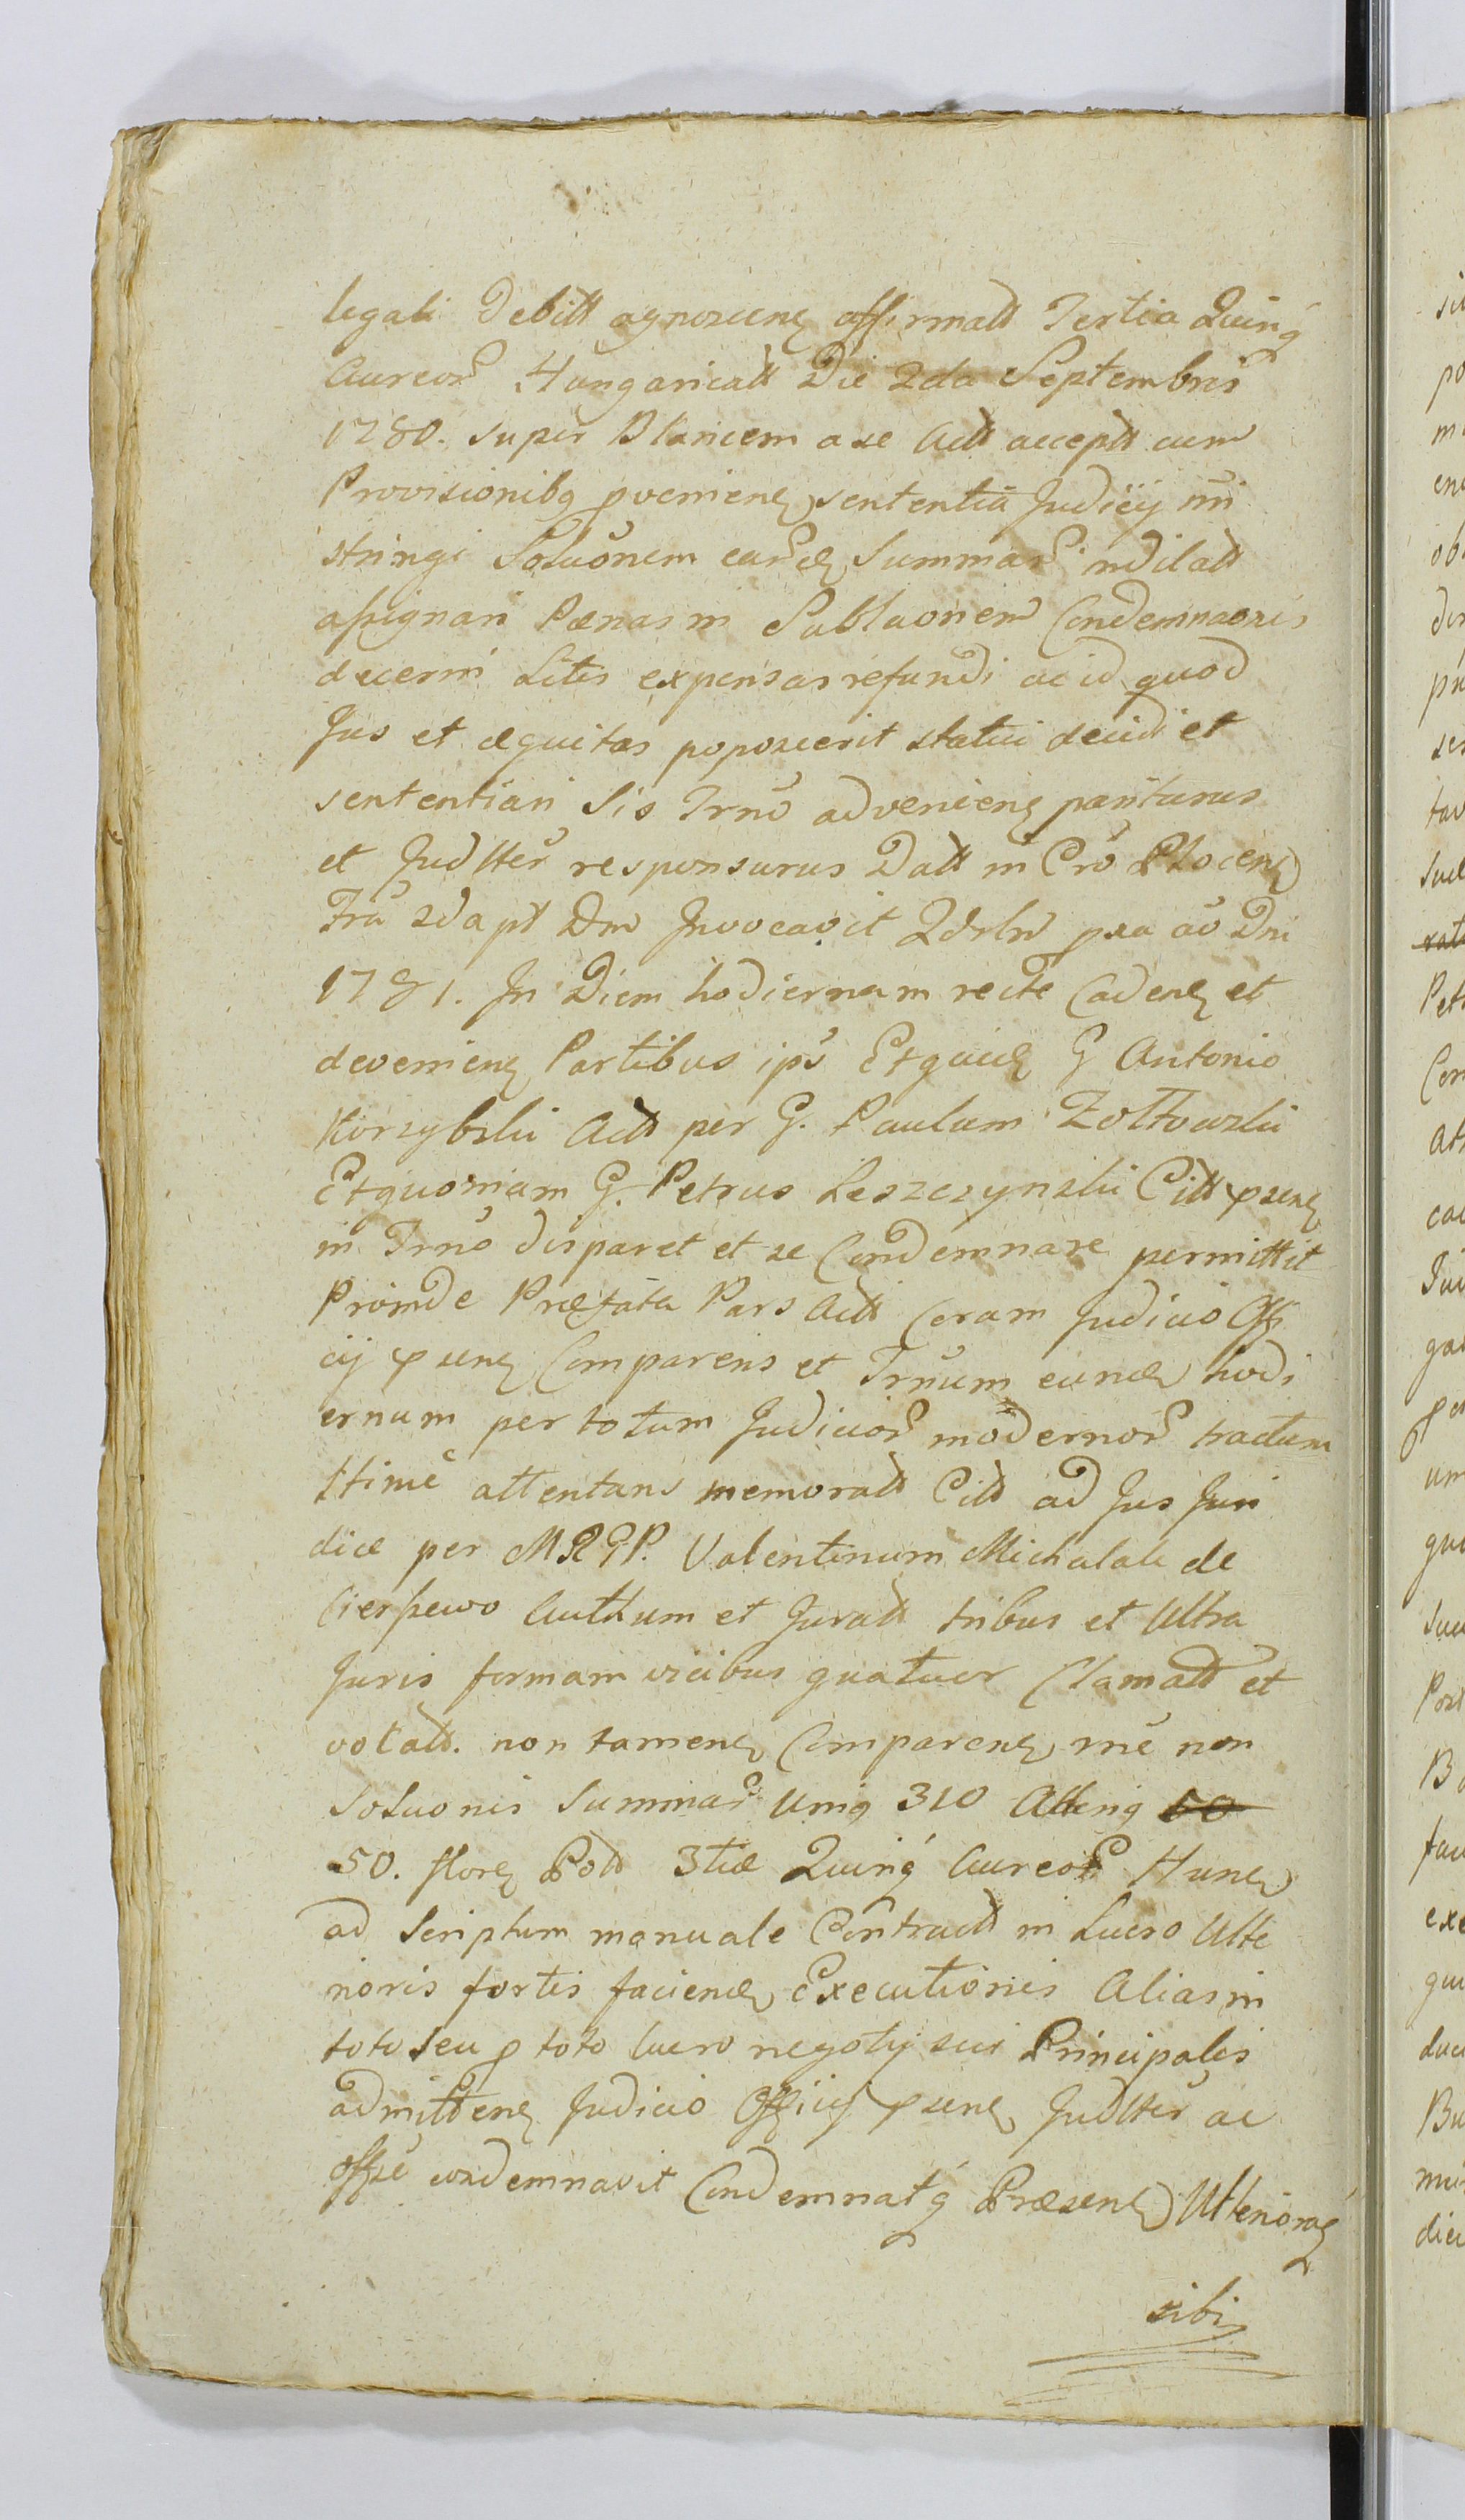 legali Debitt agnoscen affirmatt Tertia Quinq
Aureor Hungaricatt Die 2da Septembris
1780. super Blancem a se Actt acceptt cum
Provisionibq pvenien sententia Judicij nri
stringi Soluonem earund Summar indilatt
assignari Pœnas in Sublaonem Condemnaonis
decerni Litis expensas refundi ac id quod
Jus et æquitas poposcerit statui decidi et
sententiari Sis Trno advenien pariturus
et Judltter responsurus Datt in Cro Plocen
Fra 2da pt Dm Invocavit Qdrlm pxa ao Dni
1781. In Diem hodiernam recte Caden et
devenien Partibus ips Etquid G Antonio
Korzybski Actt per G. Paulum Zołtowski
Etquoniam G. Petrus Leszczynski Citt psen
in Trno disparet et se Condemnare permittit
Proinde Præfata Pars Actt Coram Judicio Offi
cij psen Comparens et Trnum eund hodi
ernum per totum Judicior modernor tractum
ltime attentans memoratt Citt ad Jus Juri
dice per MRGP. Valentinum Michalak de
Cierszewo Autthum et Juratt tribus et Ultra
Juris formam vicibus quatuor Clamatt et
vocatt. non tamen Comparen rne non
Soluonis Summar Uniq 310 Alteriq 50
50. flor Poll 3tiæ Quinq Aureor Hun
ad Scriptum manuale Contractt in Lucro Ulte
rioris fortis faciend Executionis Alias in
toto seu p toto lucro negotij sui Principalis
admitten Judicio Officij psen Judltter ac
offse condemnavit Condemnatq Præsen Ulteriorq
sibi